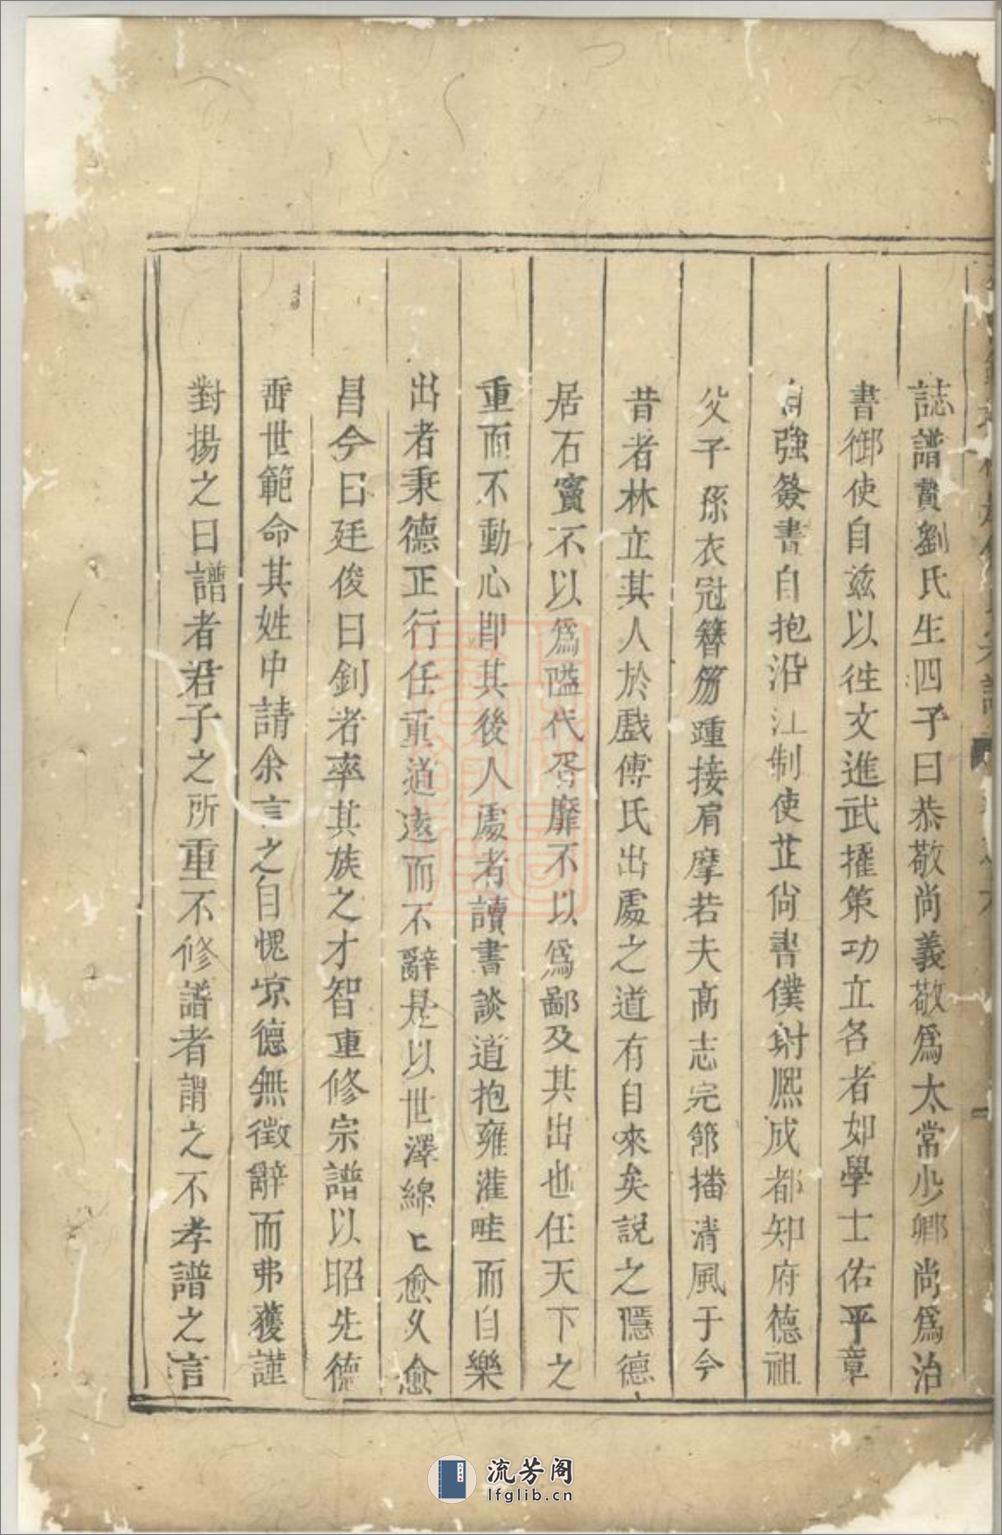 誌譜贅劉氏生四子曰恭敬尚義敬爲太常少卿尚爲治
書御使自兹以徃文進武擢策功立各者如學士佑平章
自強簽書自抱沿江制使芷尙書僕射熈成都知府德祖
父子孫衣冠簪笏踵接肩摩若夫髙志完節播清風于今
昔者林立其人於戲傅氏出處之道有自來矣説之隱德
居石竇不以爲隘代胥靡不以爲鄙及其出也任天下之
重而不動心即其後人處者讀書談道抱雍灌畦而自樂
出者秉德正行任重道遠而不辭是以世澤綿〻愈久愈
昌今曰廷俊曰釗者率其族之才智重修宗譜以昭先德
垂世範命其姓中請余言之自愧凉德無徵辭而弗獲謹
對揚之曰譜者君子之所重不修譜者謂之不孝譜之言
流芳阁
lfglib.cn